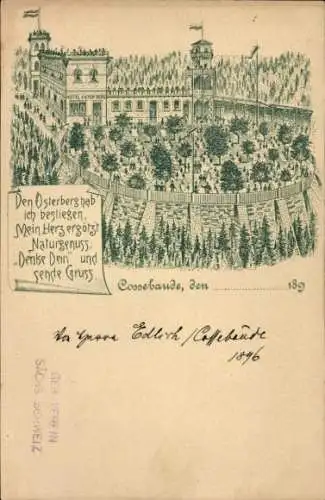 HOTEL OSTERBERG
Den Osterberg hab
ich bestiegen,
Mein Herz ergötzt
Naturgenuss.
„Denke Dein“ und
sende Gruss.
Cossebaude, den 189
Edlich / Cossebaude
1896
SÄCHS SCHWEIZ